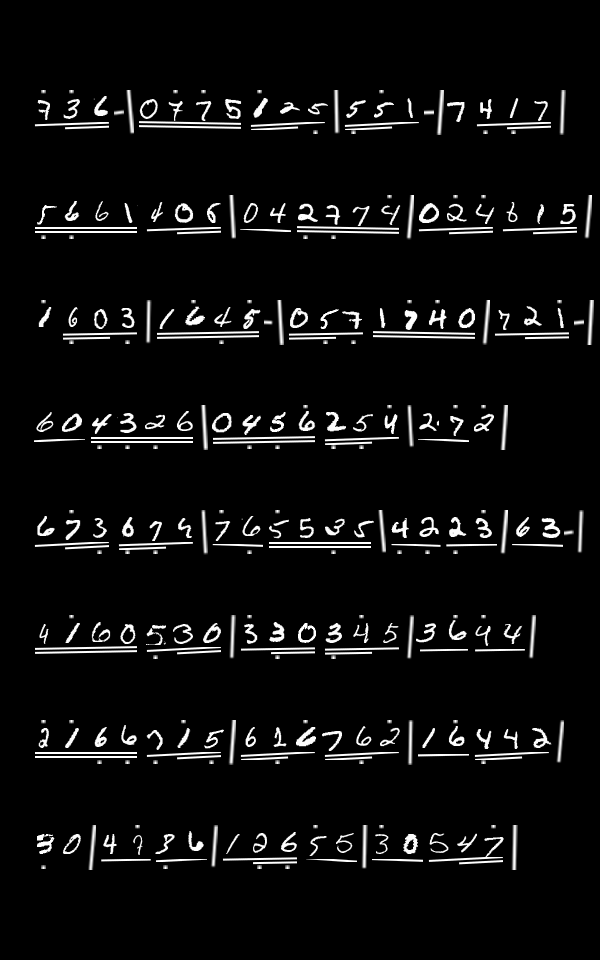 736-|0775125|551-|7417
5661406|042774|024615
1603|1645-|0571740|721-|
604326|0456254|272|
673674|765535|4223|63-|
4160530|330345|3644|
2166715|616762|16442|
30|4736|12655|30547|